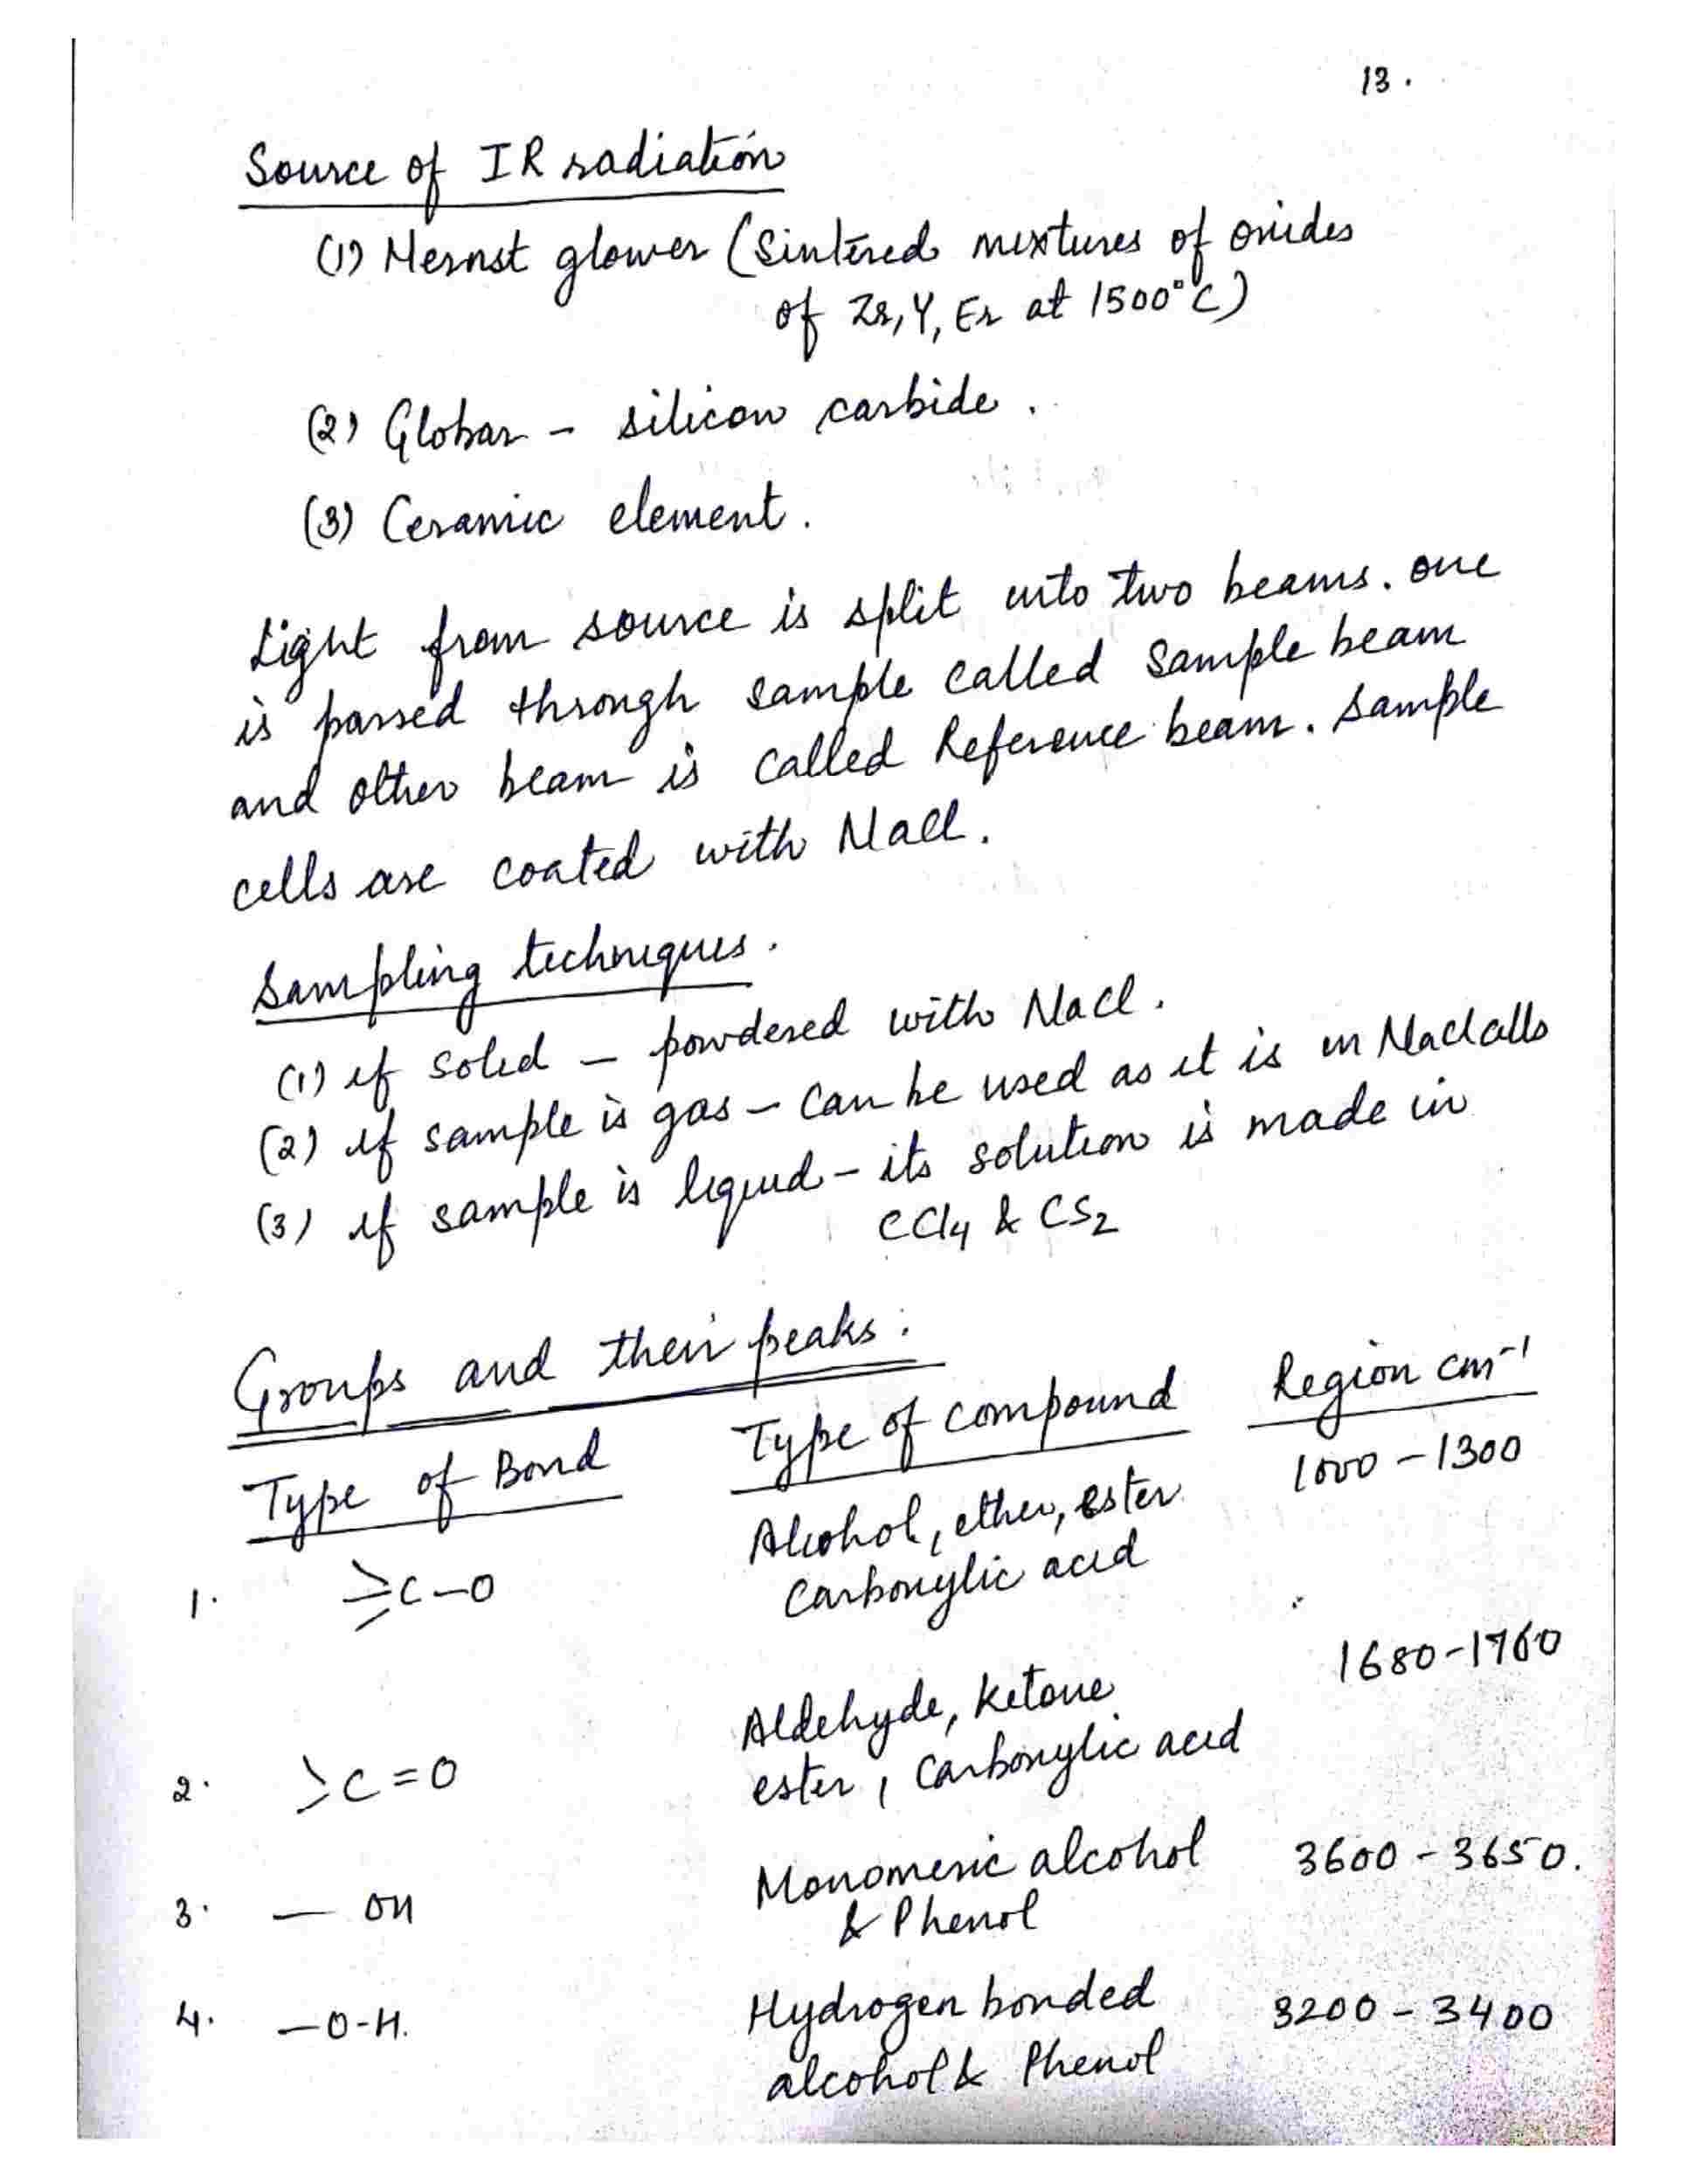 13.
Source of IR radiation
(1) Nernst glower (Sintered mixtures of oxides
of Zr, Y, Er at 1500°C)
(2) Globar - silicon carbide.
(3) Ceramic element.
Light from source is split into two beams. one
is passed through sample called sample beam
and other beam is called Reference beam. Sample
cells are coated with NaCl.
Sampling techniques.
(1) if solid - powdered with NaCl.
(2) if sample is gas - Can be used as it is in NaCl cells
(3) if sample is liquid - its solution is made in
CCl4 & CS2
Groups and their peaks:
Type of Bond Type of compound Region cm-1
1. ≥C-O Alcohol, ether, ester 1000-1300
Carboxylic acid
2. >C=O Aldehyde, Ketone 1680-1760
ester, Carboxylic acid
3. - OH Monomeric alcohol 3600-3650.
& Phenol
4. -O-H. Hydrogen bonded 3200-3400
alcohol & Phenol